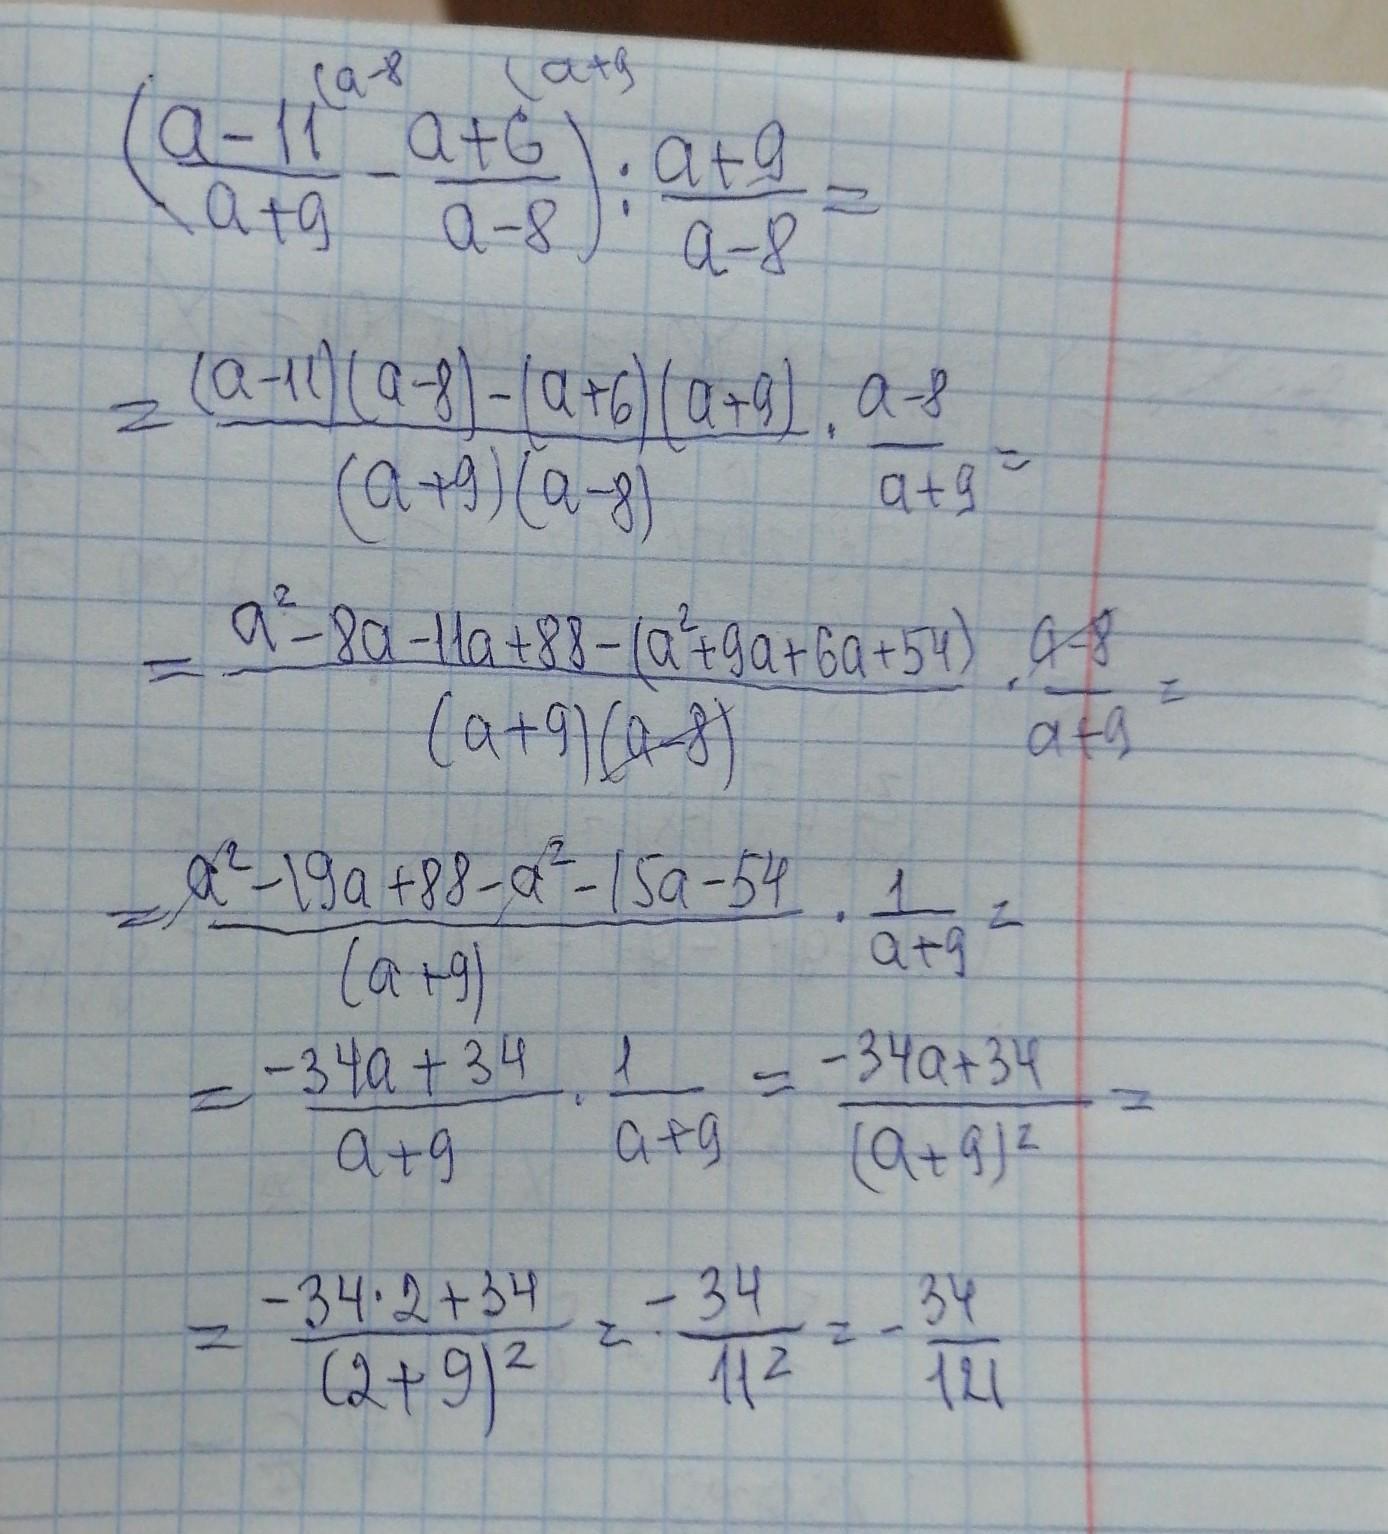 (a-8 (a+9
((a-11)/(a+9) - (a+6)/(a-8)) : (a+9)/(a-8) =
= ((a-11)(a-8)-(a+6)(a+9))/((a+9)(a-8)) · (a-8)/(a+9) =
= (a²-8a-11a+88-(a²+9a+6a+54))/((a+9)(a-8)) · (a-8)/(a+9) =
= (a²-19a+88-a²-15a-54)/(a+9) · 1/(a+9) =
= (-34a+34)/(a+9) · 1/(a+9) = (-34a+34)/(a+9)² =
= (-34·2+34)/(2+9)² = -34/11² = -34/121